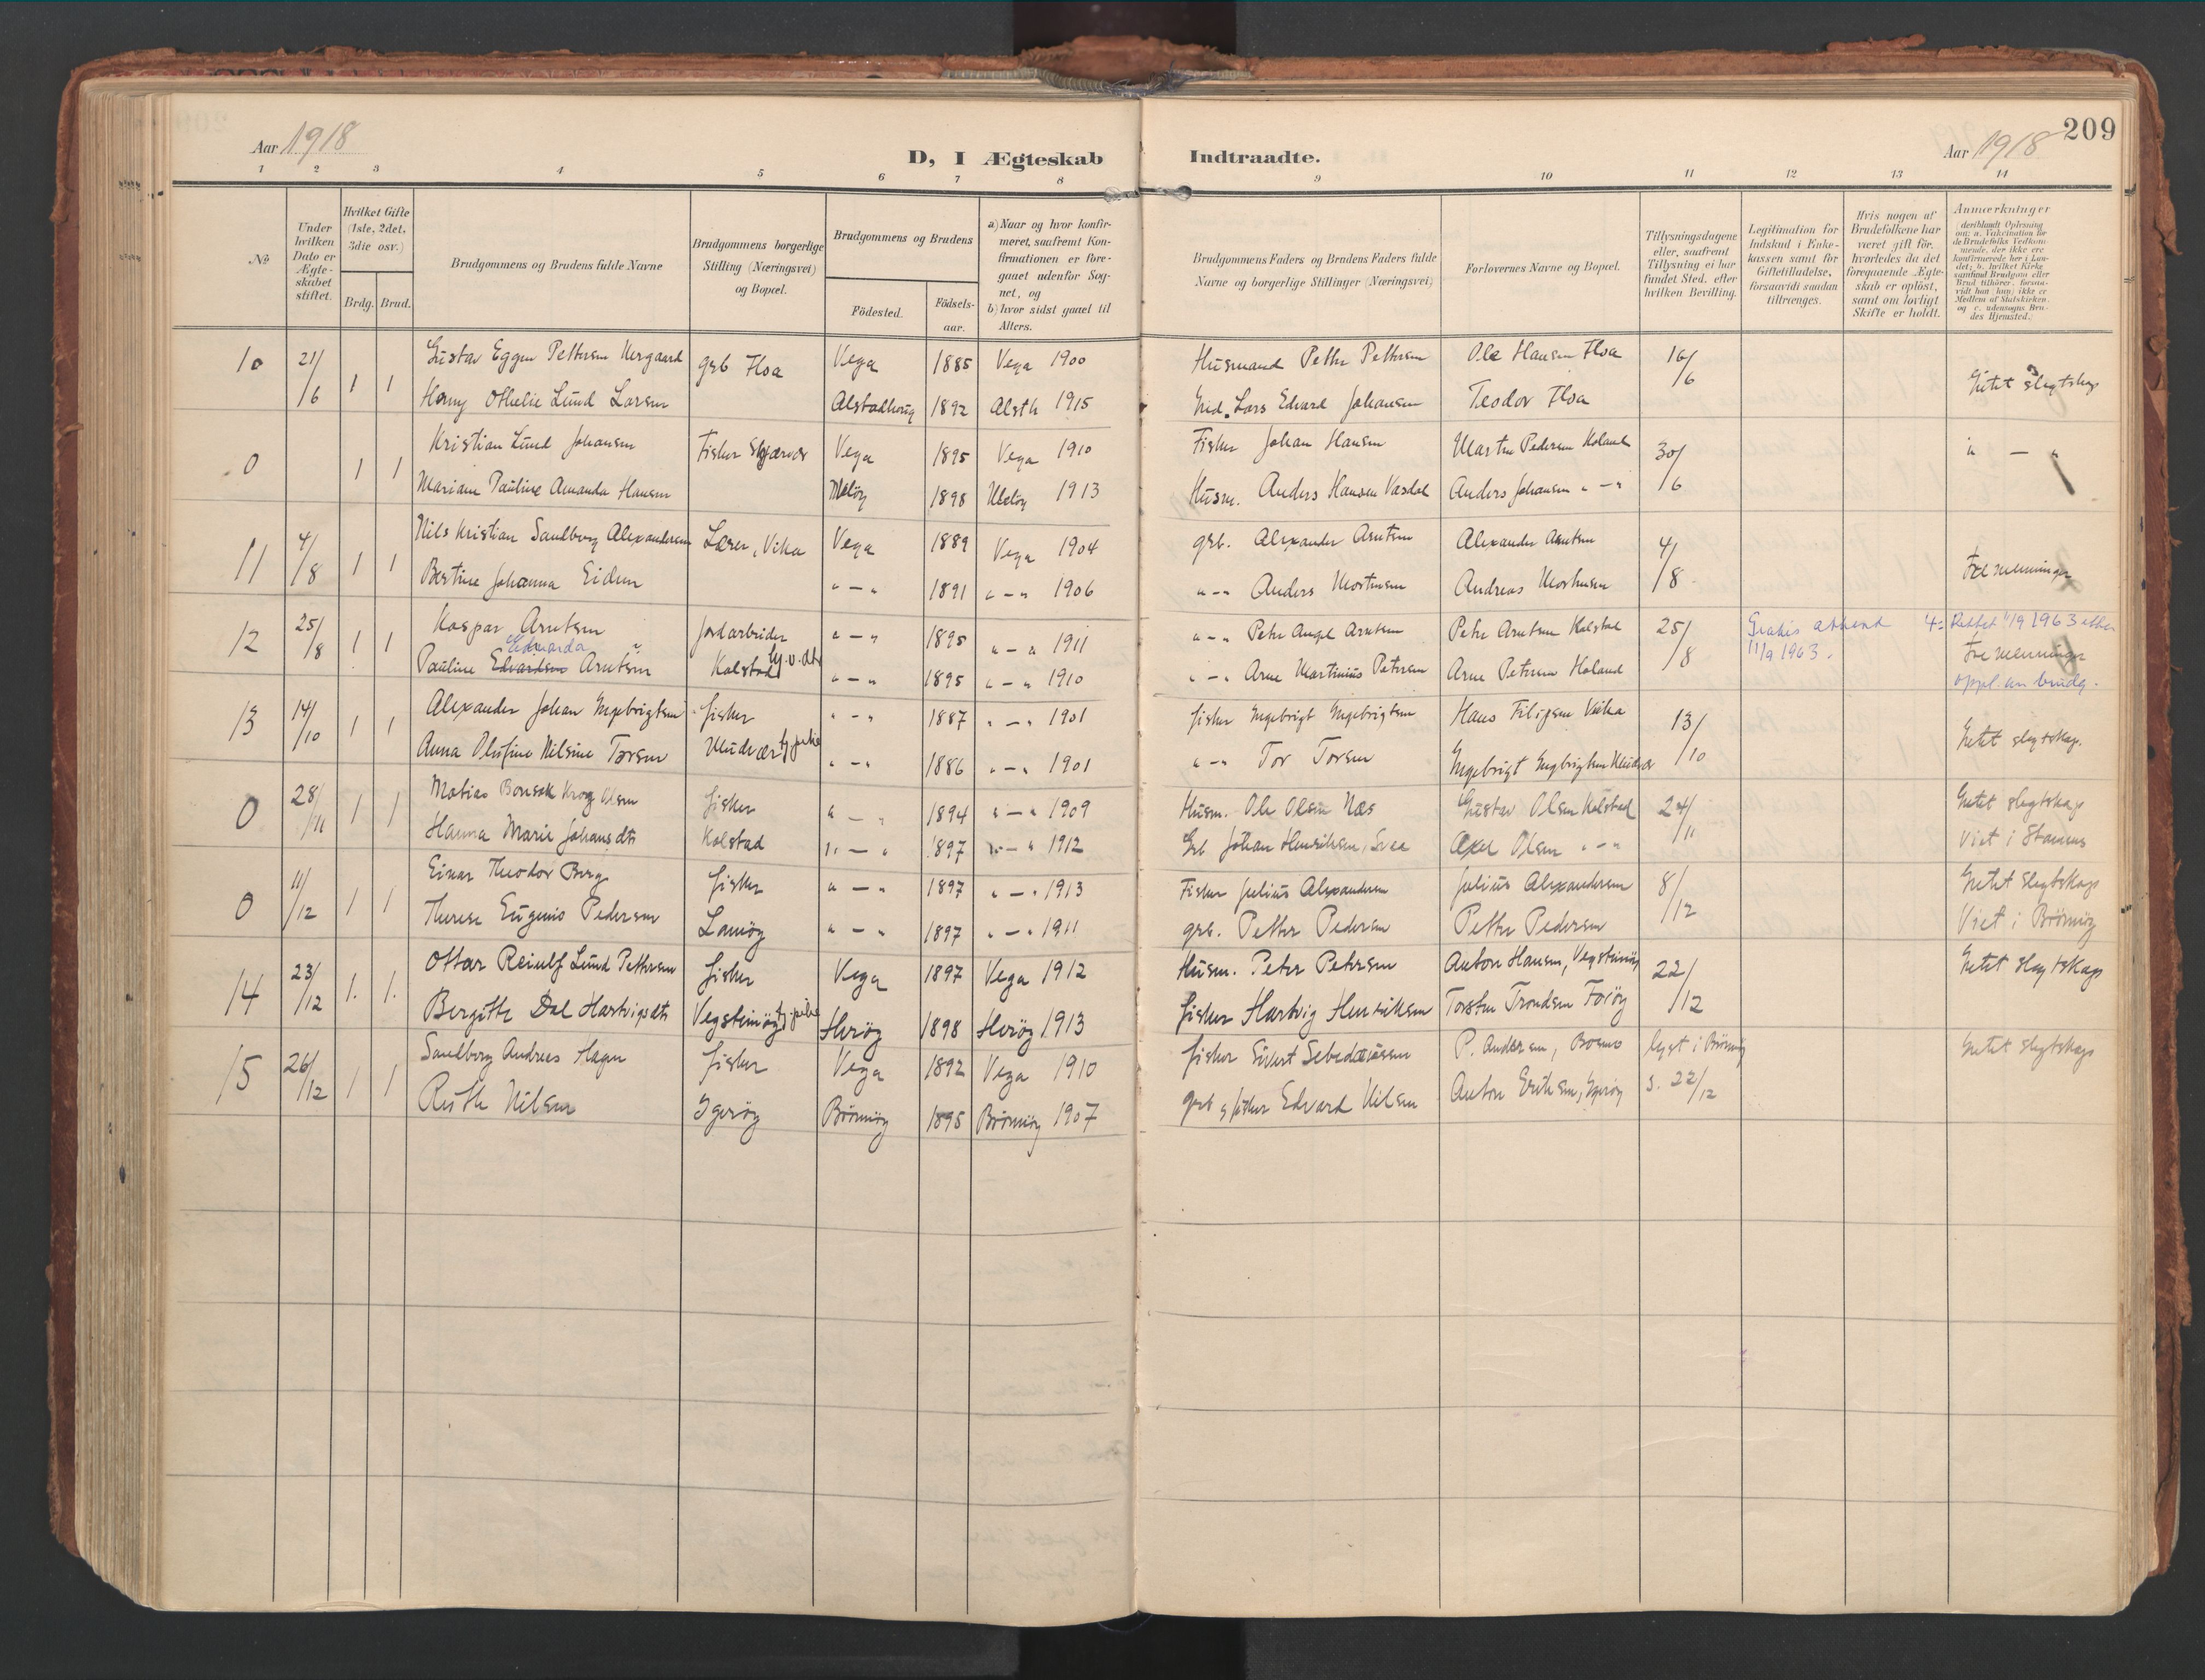 209
Aar 1918
D, I Ægteskab
Indtraadte.
Aar 1918
1 2 3 4 5 6 7 8 9 10 11 12 13 14
No
Under hvilken Dato er Ægte-skabet stiftet.
Hvilket Gifte (1ste, 2det, 3die osv.)
Brdg. Brud.
Brudgommens og Brudens fulde Navne
Brudgommens borgerlige Stilling (Næringsvei) og Bopæl.
Brudgommens og Brudens
Födested.
Födsels-aar.
a) Naar og hvor konfir-meret, saafremt Kon-firmationen er fore-gaaet udenfor Sog-net, og
b) hvor sidst gaaet til Alters.
Brudgommens Faders og Brudens Faders fulde Navne og borgerlige Stillinger (Næringsvei)
Forlovernes Navne og Bopæl.
Tillysningsdagene eller, saafremt Tillysning ei har fundet Sted, efter hvilken Bevilling.
Legitimation for Indskud i Enke-kassen samt for Giftetilladelse, forsaavidt saadan tiltrænges.
Hvis nogen af Brudefolkene har været gift för, hvorledes da det foregaaende Ægte-skab er oplöst, samt om lovligt Skifte er holdt.
Anmærkninger
10 21/6 1 1 Gustav Eggen Pettersen Nergaard grb Floa Vega 1885 Vega 1900 Husmand Petter Pettersen Ole Hansen Floa 16/6 Intet slegtskap
Othelie Lund Larsen Alstadhoug 1892 Alsth 1915 Lars Edvard Johansen Teodor Floa
0 1 1 Kristian Lund Johansen Fisker Vega 1895 Vega 1910 Fisker Johan Hansen Martin Pedersen 30/6 " — "
Pauline Amanda Hansen Meløy 1898 Meløy 1913 Husm. Anders Hansen Anders Johansen " — "
11 4/8 1 1 Nils Kristian Sandberg Alexandersen Lærer, Vika Vega 1889 Vega 1904 grb. Alexander Arntsen Alexander Arntsen 4/8 Fremenninger
Bertine Johanna Eidem " — " 1891 " — " 1906 " — " Anders Mortensen Andreas Mortensen
12 25/8 1 1 Kaspar Arntsen Jordarbeider " — " 1895 " — " 1911 " — " Peter Angel Arntsen Peter Arntsen Kolstad 25/8 Gratis attest 11/9 1963. 4: Rettet 11/9 1963 etter
Pauline Edvardsen Edvarda Arntsen Kolstad " — " 1895 " — " 1910 " — " Arne Martinius Petersen Arne Petersen Holand Fremenninger
oppl. av brudg.
13 14/10 1 1 Alexander Johan Ingebrigtsen fisker " — " 1887 " — " 1901 fisker Ingebrigt Ingebrigtsen Hans Filipsen Vika 13/10 Intet slegtskap.
Anna Olufine Nilsine Torsen Muddvær " — " 1886 " — " 1901 " — " Tor Torsen Ingebrigt Ingebrigtsen
0 28/11 1 1 Matias Bonsak Krog Olsen fisker " — " 1894 " — " 1909 Husm. Ole Olsen Næs Gustav Olsen Kolstad 24/11 Intet slegtskap
Hanna Marie Johansdtr Kolstad " — " 1897 " — " 1912 Grb Johan Henriksen, Axel Olsen " — " Viet i Stamnes
0 11/12 1 1 Einar Theodor Berg fisker " — " 1897 " — " 1913 Fisker Julius Alexandersen Julius Alexandersen 8/12 Intet Slegtskap
Therese Eugenie Pedersen " — " 1897 " — " 1911 grb. Petter Pedersen Petter Pedersen Viet i Brönnöy
14 23/12 1. 1. Ottar Reinulf Lund Pettersen fisker Vega 1897 Vega 1912 Husm. Peter Petersen Anton Hansen, Vegsteinöy 22/12 Intet slegtskap
Bergitte Dal Hartvigsdtr Vegsteinöy Herøy 1898 Herøy 1913 fisker Hartvig Henriksen Torsten Trondsen
15 26/12 1 1 Sandberg Andreas Hagen fisker Vega 1892 Vega 1910 fisker Sivert Sebedæussen P. Andersen, lyst i Brönnöy Intet slegtskap
Ruth Nilsen Ygeröy Brönnöy 1895 Brönnöy 1907 grb g fisker Edvard Nilsen Anton Eriksen, Ygeröy s. 22/12